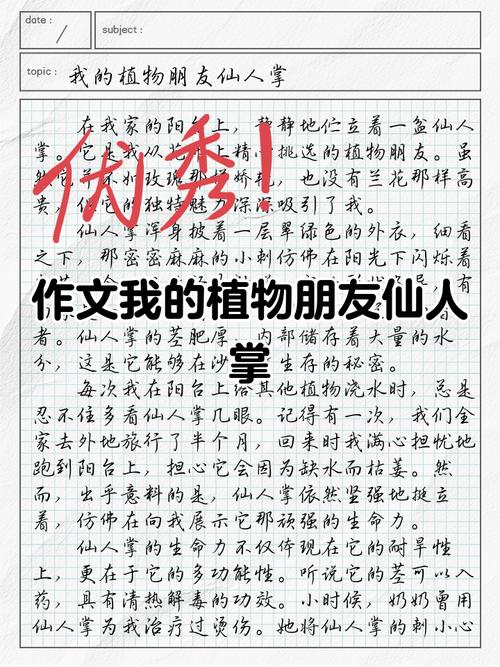 date :
subject :
topic : 我的植物朋友仙人掌
在我家的阳台上，静静地伫立着一盆仙人
掌。它是我从花市上精心挑选的植物朋友。虽
然它并不如玫瑰那样娇艳，也没有兰花那样高
贵，但它的独特魅力深深吸引了我。
优秀！
仙人掌浑身披着一层翠绿色的外衣，细看
之下，那密密麻麻的小刺仿佛在阳光下闪烁着
作文我的植物朋友仙人
掌
者。仙人掌的茎肥厚，内部储存着大量的水
分，这是它能够在沙 生存的秘密。
每次我在阳台上给其他植物浇水时，总是
忍不住多看仙人掌几眼。记得有一次，我们全
家去外地旅行了半个月，回来时我满心担忧地
跑到阳台上，担心它会因为缺水而枯萎。然
而，出乎意料的是，仙人掌依然坚强地挺立
着，仿佛在向我展示它那顽强的生命力。
仙人掌的生命力不仅体现在它的耐旱性
上，更在于它的多功能性。听说它的茎可以入
药，具有清热解毒的功效。小时候，奶奶曾用
仙人掌为我治疗过烫伤。她将仙人掌的刺小心